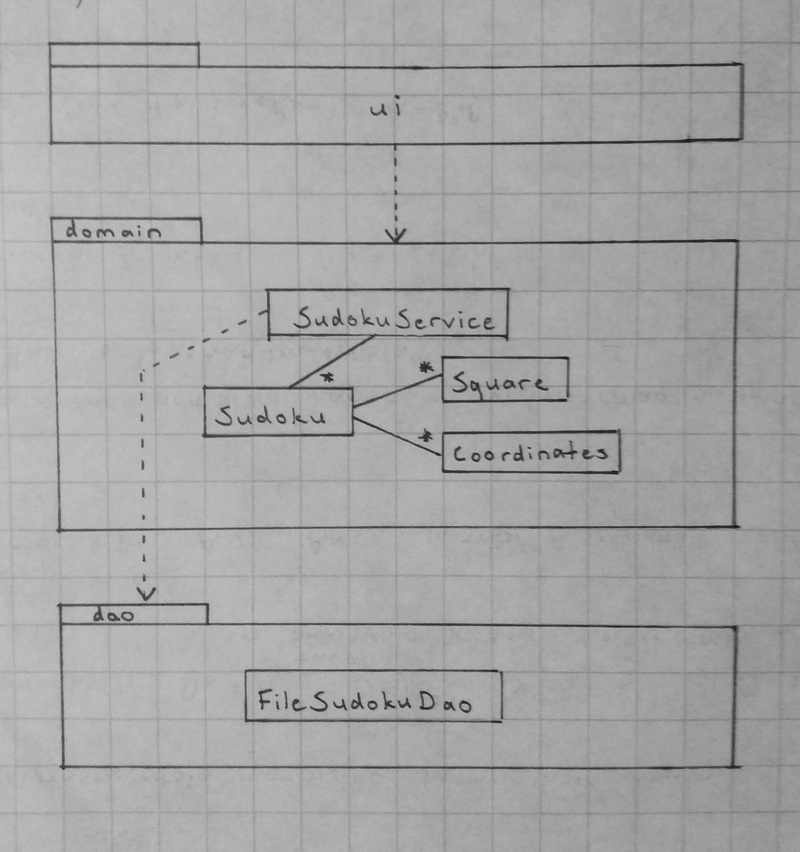 ui
domain
SudokuService
*
*
Square
Sudoku
*
Coordinates
dao
FileSudokuDao